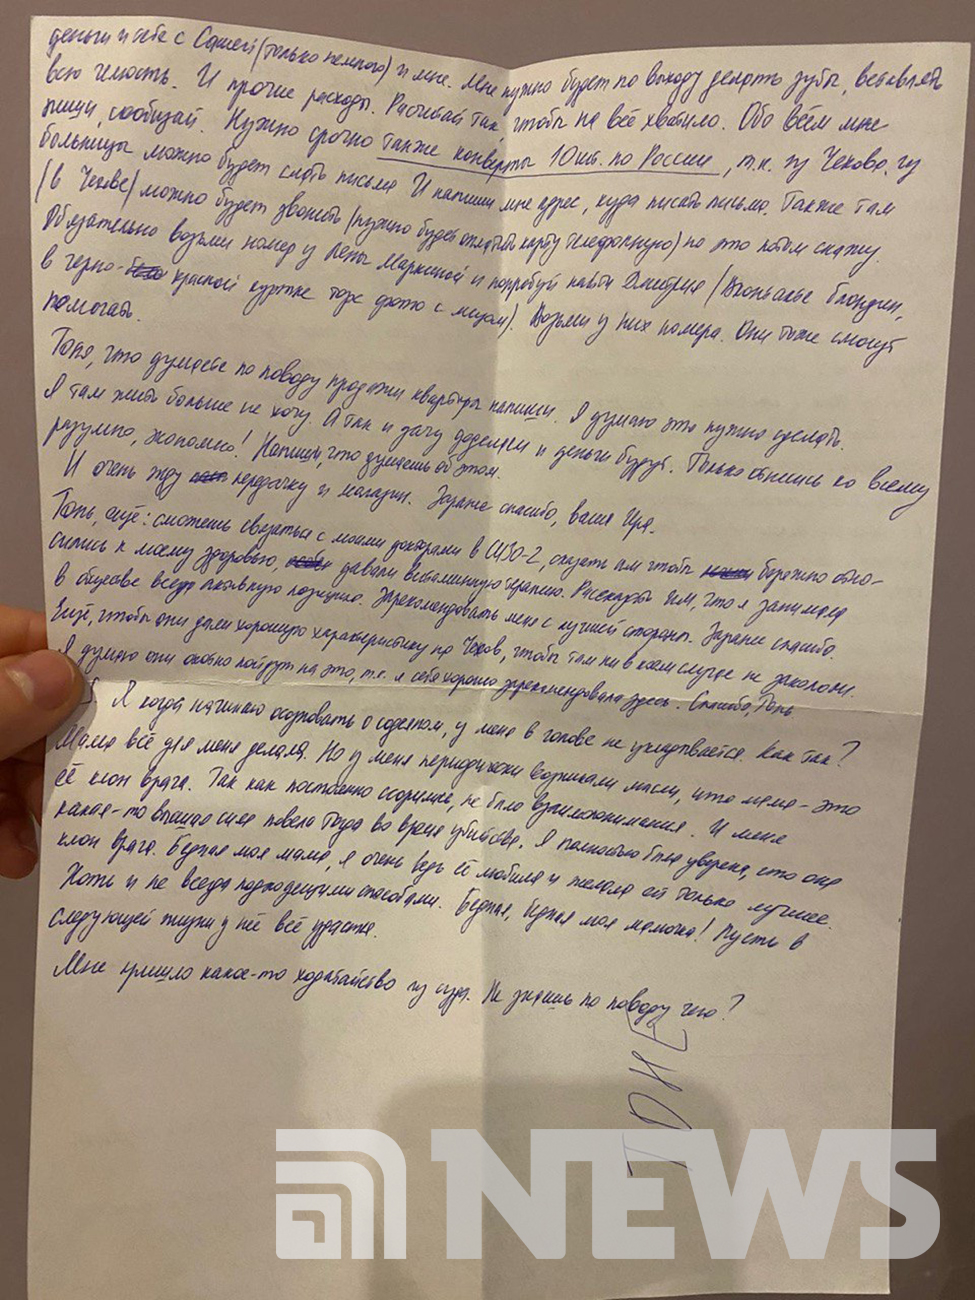 деньги и тебе с Сашей (только немного) и мне. Мне нужно будет по выходу делать зубы, вставлять
всю челюсть. И прочие расходы. Расчитай так, чтобы на всё хватило. Обо всём мне
пиши, сообщай. Нужно срочно также конверты 10 шт. по России, т.к. из Чехова, из
больницы можно будет слать письма И напиши мне адрес, куда писать письмо. Также там
(в Чехове) можно будет звонить (нужно будет оплатить карту телефонную) но это потом скажу
Обязательно возьми номер у Лены Маркиной и попробуй найти Дмитрия / блондин,
в черно- красной куртке торс фото с мечом). Возьми у них номера. Они тоже смогут
помогать.
Тоня, что думаете по поводу продажи квартиры напиши. Я думаю это нужно сделать.
Я там жить больше не хочу. А так и дачу доделаем и деньги будут. Только отнесись ко всему
разумно, экономно! Напиши, что думаешь об этом.
И очень жду передачку и магазин. Заранее спасибо, ваша Ира.
Тонь, ещё: сможешь связаться с моими докторами в СИЗО-2, сказать им чтобы бережно отно-
сились к моему здоровью, давали витаминную терапию. Расскажи им, что я занимала
в обществе всегда активную позицию. Зарекомендовать меня с лучшей стороны. Заранее спасибо.
Ещё, чтобы они дали хорошую характеристику на Чехов, чтобы там ни в коем случае не закололи.
Я думаю они охотно пойдут на это, т.к. я себя хорошо зарекомендовала здесь. Спасибо, Тонь
S. Я когда начинаю осознавать о сделанном, у меня в голове не укладывается. Как так?
Мама всё для меня делала. Но у меня периодически возникали мысли, что мама - это
её клон врага. Так как постоянно ссорились, не было взаимопонимания. И меня
какая-то внешняя сила повела тогда во время убийства. Я полностью была уверена, что она
клон врага. Бедная моя мама, я очень ведь её любила и желала ей только лучшее.
Хоть и не всегда подходящими способами. Бедная, бедная моя мамочка! Пусть в
следующей жизни у неё всё удастся.
Мне пришло какое-то ходатайство из суда. Не знаешь по поводу чего?
ТОНЕ
NEWS